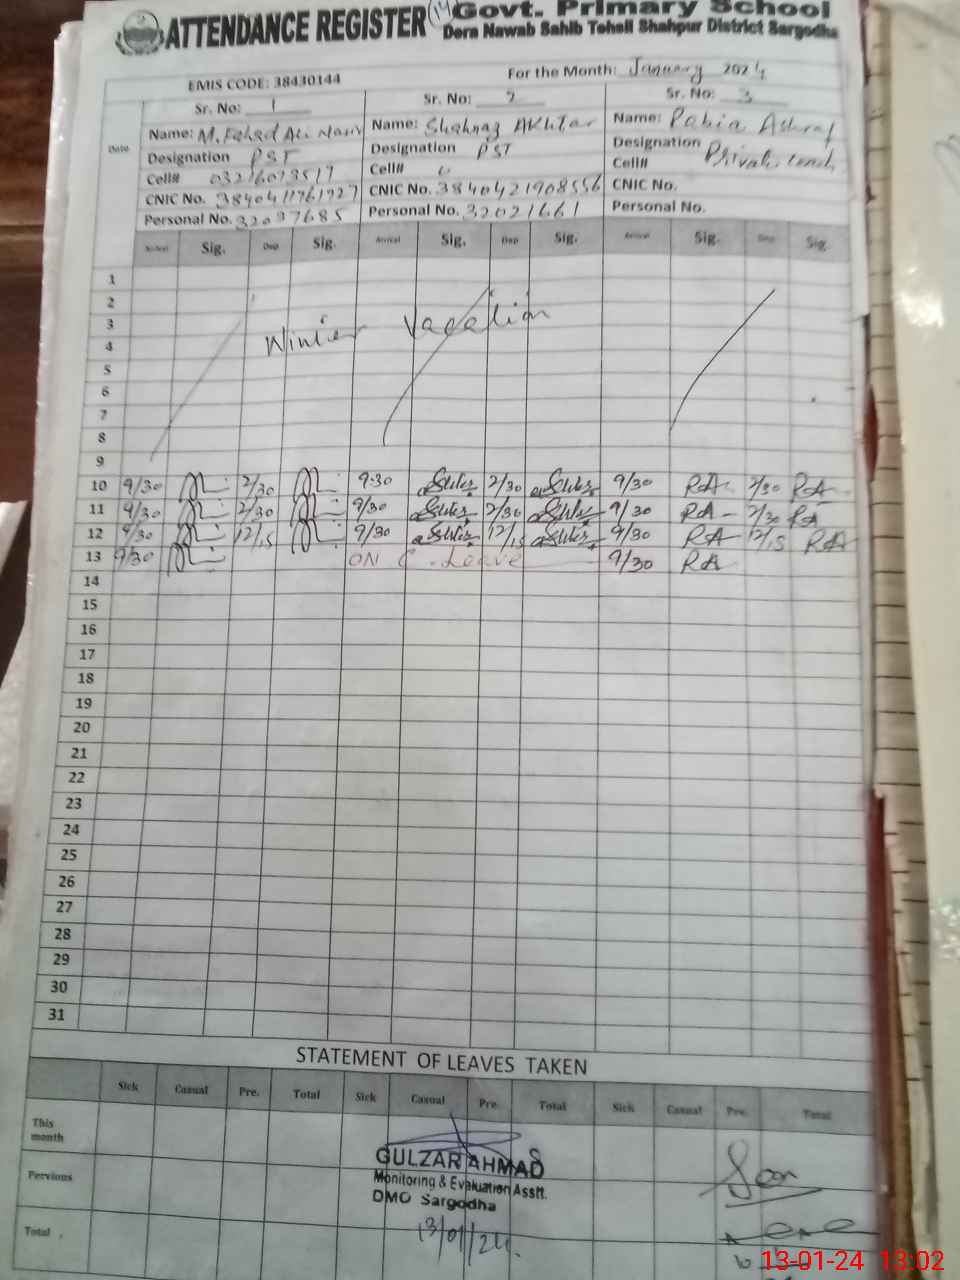 ATTENDANCE REGISTER (14) Govt. Primary School
Dera Nawab Sahib Tehsil Shahpur District Sargodha
EMIS CODE: 38430144 For the Month: January 2024
Date Sr. No: 1 Sr. No: 2 Sr. No: 3
Name: M. Fahad Ali Name: Shahnaz Akhtar Name: Rabia Ashraf
Designation PST Designation PST Designation Private
Cell# Cell# Cell#
CNIC No. CNIC No. 3840421908556 CNIC No.
Personal No. 32037685 Personal No. 32021661 Personal No.
Arrival Sig. Dep Sig. Arrival Sig. Dep Sig. Arrival Sig. Dep Sig.
1
2
3 Winter Vacation
4
5
6
7
8
9
10 9/30 2/30 9:30 2/30 9/30 RA 2/30 RA
11 9/30 2/30 9/30 2/30 9/30 RA 2/30 RA
12 9/30 12/15 9/30 12/15 9/30 RA 12/15 RA
13 9/30 ON C. Leave 9/30 RA
14
15
16
17
18
19
20
21
22
23
24
25
26
27
28
29
30
31
STATEMENT OF LEAVES TAKEN
Sick Casual Pre. Total Sick Casual Pre. Total Sick Casual Pre. Total
This month
Pervious
Total
GULZAR AHMAD
Monitoring & Evaluation Asstt.
DMO Sargodha
13/01/24.
13-01-24 13:02